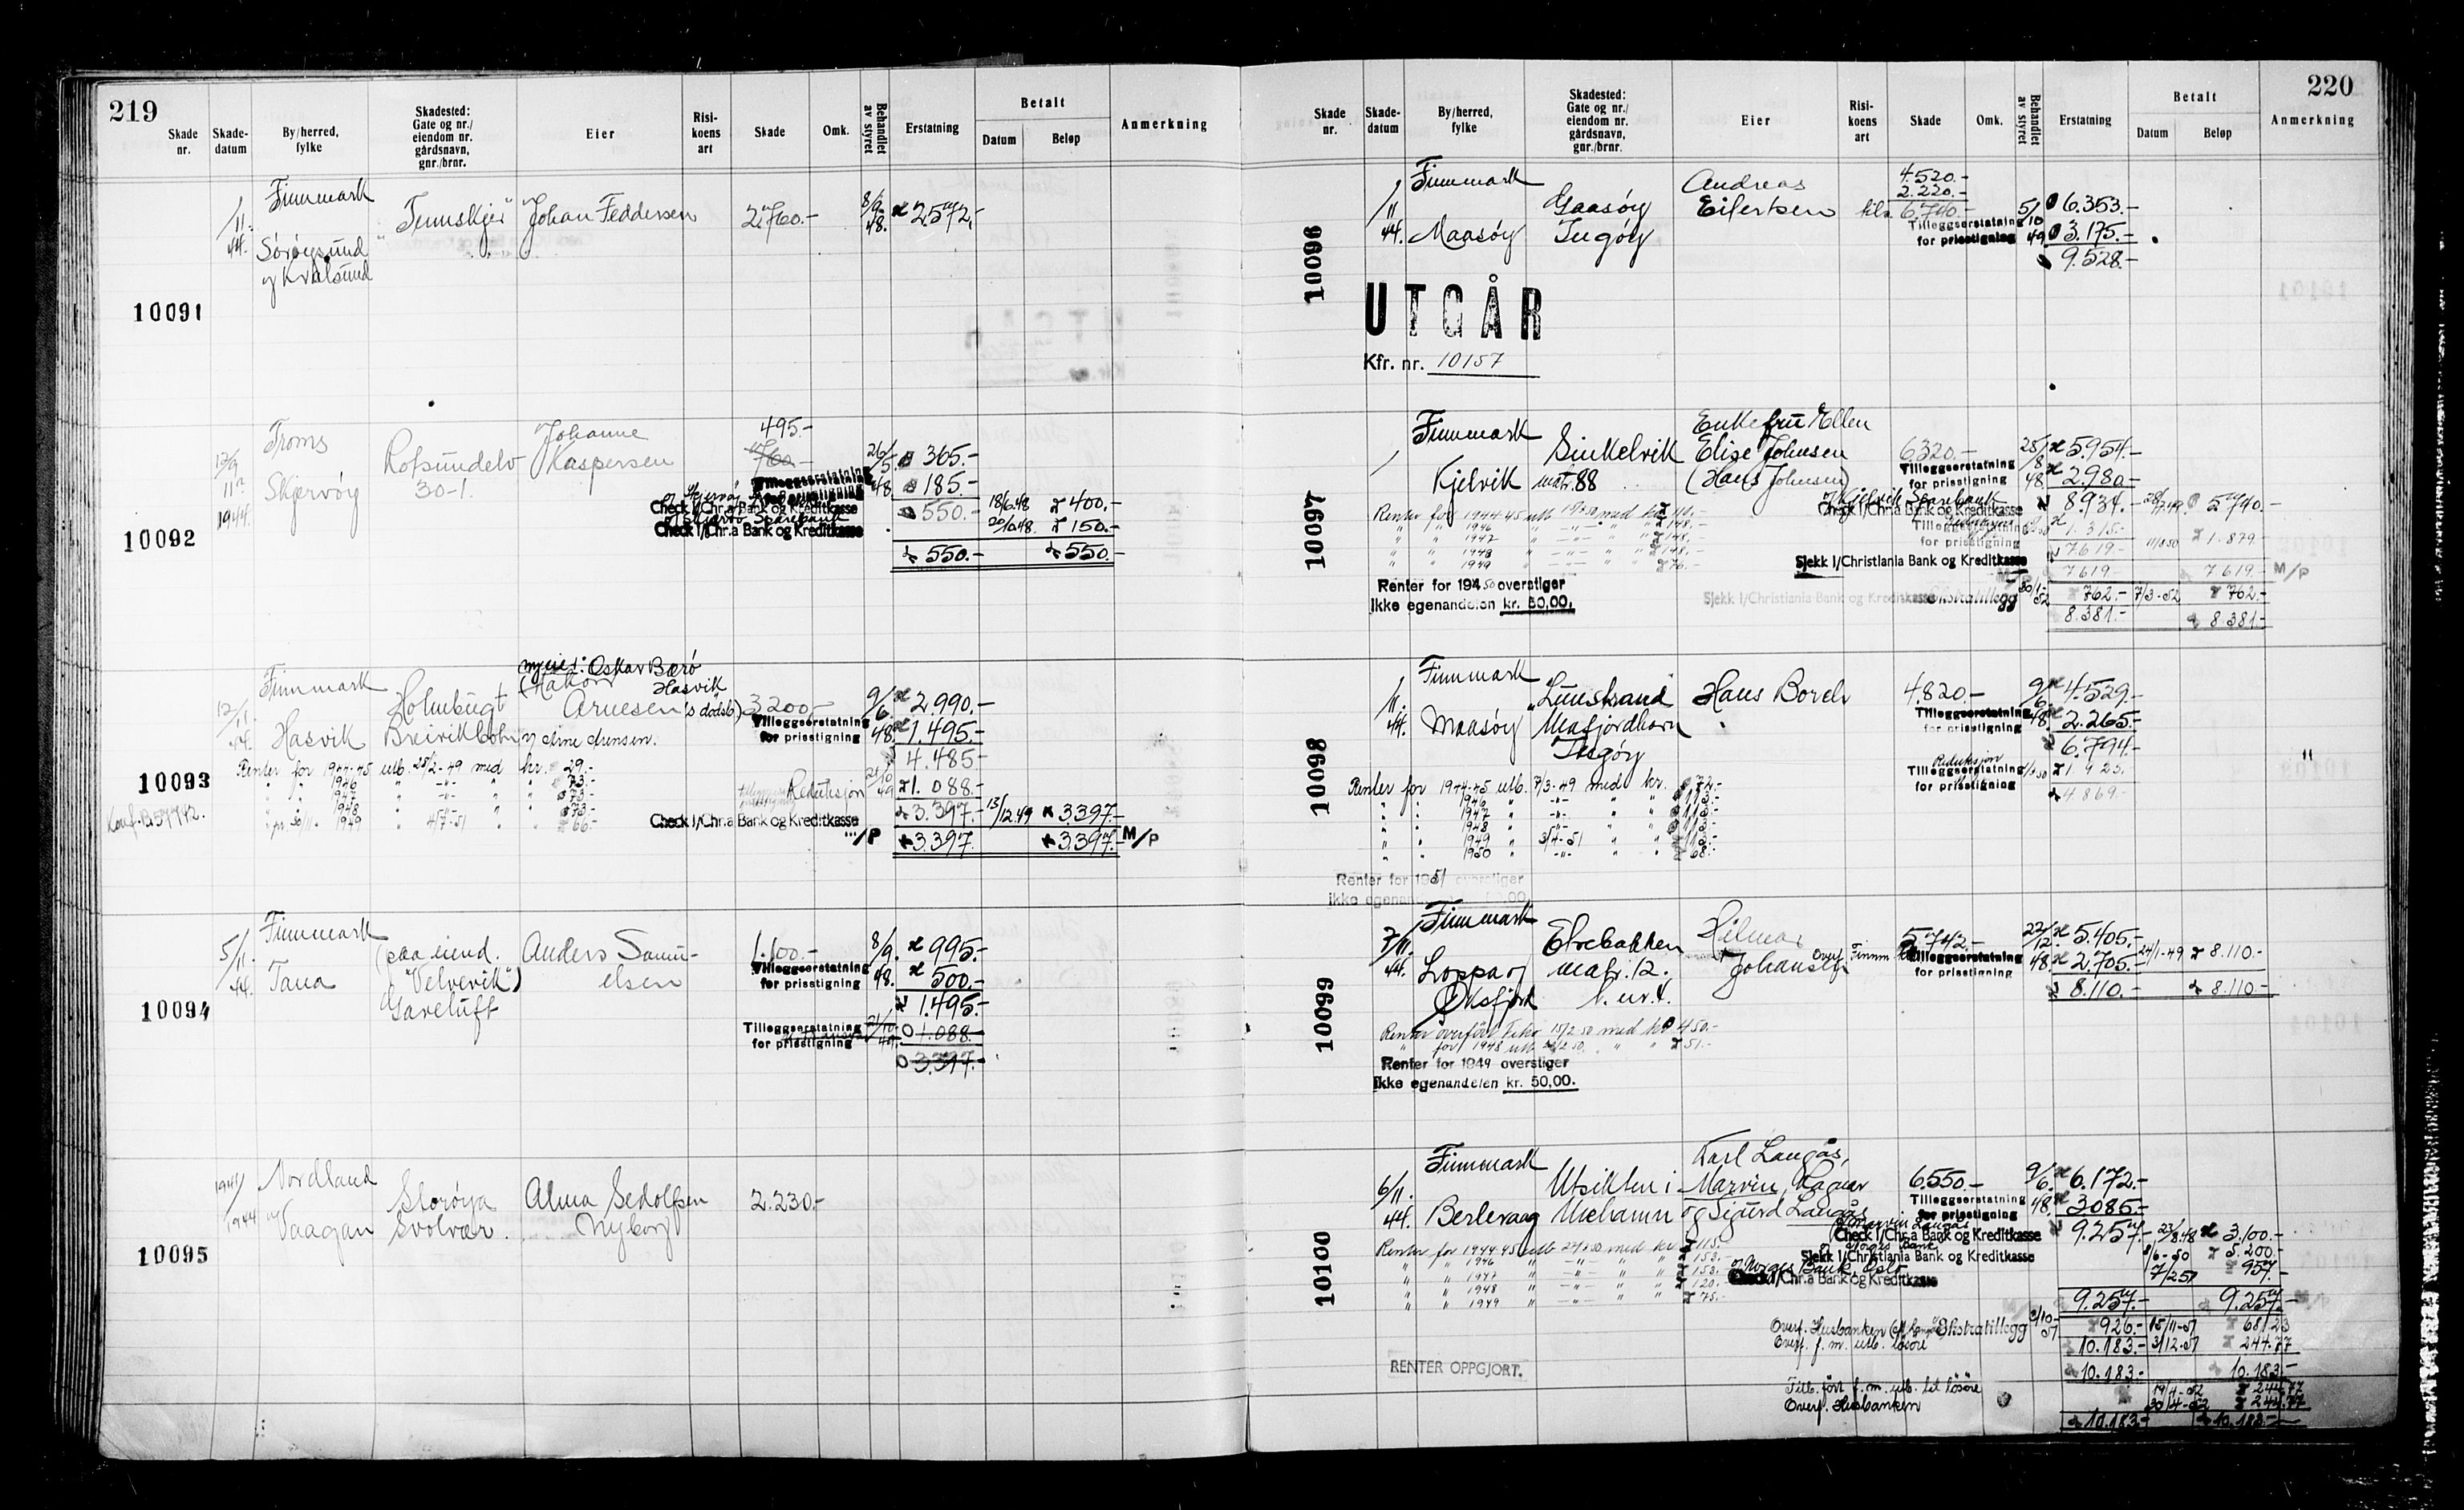 219
Skade nr.
Skade-datum
By/herred, fylke
Skadested: Gate og nr./ eiendom nr. gårdsnavn, gnr./brnr.
Eier
Risi-koens art
Skade
Omk.
Behandlet av styret
Erstatning
Betalt
Datum
Beløp
Anmerkning
10091
1/11.44.
Finnmark
Sørøysund
og Kvalsund
Johan Feddersen
2.760.-
8/9.48.
2.572,-
10092
Troms
Skjervøy
1944.
Rofsundelv
30-1.
Johanne
Kaspersen
495.-
760.-
Tilleggserstatning
for prisstigning
26/5 48.
365.-
185.-
Check 1/Chr.a Bank og Kreditkasse
550.-
18/6.48
400.-
Check 1/Chr.a Bank og Kreditkasse
150.-
550.-
550.-
10093
12/11.44.
Finnmark
Hasvik
Holmbugt
Oskar Bærø
Hasvik
(Håkon
Arnesen
's dødsb.)
3200.-
Tilleggserstatning
for prisstigning
9/6.48.
2.990.-
1.495.-
4.485.-
Renter for 1944-45 utb. 25/2-49 med kr. 29.-
" " 1946 " -"- " " 73.-
" " 1947 " -"- " " 73.-
" " 1948 " -"- " " 73.-
1949 " 4/7-51 " " 66.-
Reduksjon
21/10 49
1.088.-
3.397.-
13/12.49
3.397.-
Check 1/Chr.a Bank og Kreditkasse
3.397.
3.397.-
M/P
10094
5/11.44.
Finnmark
Tana
(paa eiend.
"Velvevik")
Gaveluft
Anders Samu-
elsen
1.100.-
Tilleggserstatning
for prisstigning
8/9.48.
995.-
500.-
1.495.-
Tilleggserstatning
for prisstigning
21/10.49.
1.088.-
3.397.-
10095
1941/1944
Nordland
Vaagan
Storøya
Svolvær.
Alma Sedolfsen
Nyborg
2.230.-
220
Skade nr.
Skade-datum
By/herred, fylke
Skadested: Gate og nr./ eiendom nr. gårdsnavn, gnr./brnr.
Eier
Risi-koens art
Skade
Omk.
Behandlet av styret
Erstatning
Betalt
Datum
Beløp
Anmerkning
10096
1/11.44.
Finnmark
Maasøy
Gaasøy
Ingøy
Andreas
Eilertsen
4.520.-
2.220.-
6.740.-
Tilleggserstatning
for prisstigning
5/10 49
6.353.-
3.175.-
9.528.-
UTGÅR
Kfr. nr. 10157
10097
Finnmark
Kjelvik
Sinkelvik
matr. 88
Enkefru Ellen
Elise Johnsen
(Hans Johnsen)
6320.-
Tilleggserstatning
for prisstigning
28/8 48.
5954.-
2.980.-
Kjelvik Sparebank
Check 1/Chr.a Bank og Kreditkasse
8.934.-
5.740.-
Renter for 1944-45 utb. med kr. 110.-
" " 1946 " -"- " " 148,-
" " 1947 " -"- " " 148.-
" " 1948 " -"- " " 148.-
" " 1949 " -"- " " 76.-
Tilleggserstatning
for prisstigning
1.315.-
7.619.-
11/8 50
1.879.-
Sjekk 1/Christiania Bank og Kreditkasse
7619.-
7619.-
M/P
Renter for 1950 overstiger
ikke egenandelen kr. 50,00.
Sjekk 1/Christiania Bank og Kreditkasse
Ekstratillegg
30/1-52
762.-
7/3-52
762.-
8.381.-
8.381.-
10098
1/11.44.
Finnmark
Maasøy
Mafjordhavn
Ingøy
Hans Borch
4.820.-
Tilleggserstatning
for prisstigning
9/6.48.
4.529.-
2.265.-
6.794.-
Reduksjon
Tilleggserstatning
for prisstigning
1.925.-
4.869.-
Renter for 1944-45 utb. 7/3-49 med kr. 72.-
" " 1946 " -"- " " 113.-
" " 1947 " -"- " " 113.-
" " 1948 " -"- " " 113.-
" " 1949 " 3/4-51 " " 113.-
" " 1950 " -"- " " 68.-
Renter for 1951 overstiger
ikke egenandelen 50,00
10099
7/11.44.
Finnmark
Loppa og
Øksfjord
Elvebakken
matr. 12.
Hilmar
Johansen
5.742.-
Tilleggserstatning
for prisstigning
22/12.48.
5.405.-
2.705.-
24/1-49
8.110.-
8.110.-
8.110.-
Renter overført 15/2 50 med kr. 450.-
" for 1948 utb. " " 51.-
Renter for 1949 overstiger
ikke egenandelen kr. 50,00.
10100
6/11.44.
Finnmark
Berlevaag
Utsikten i
Mehamn
Karl Langås,
Marvin, Ragnar
og Sigurd Langås
6.550.-
Tilleggserstatning
for prisstigning
9/6.48.
6.172.-
3085.-
Marvin Langås
Check 1/Chr.a Bank og Kreditkasse
9.257.-
23/8.48
3.100.-
Renter for 1944-45 utb. med kr. 115.-
" " 1946 " -"- " " 153.-
" " 1947 " -"- " " 153.-
" " 1948 " -"- " " 120.-
" " 1949 " -"- " " 75.-
Norges Bank
Sjekk 1/Christiania Bank og Kreditkasse
8/6-50
5.200.-
Norges Bank, Oslo
Check 1/Chr.a Bank og Kreditkasse
7/2 51
957.-
9.257.-
9.257.-
Overf. Husbanken
Ekstratillegg
926.-
15/11-51
681,23
Overf. f. m. utb. løsøre
10.183.-
3/12-51
244.77
10.183.-
10.183.-
RENTER OPPGJORT.
Tilb. ført f. m. utb. til løsøre
19/4-52
244,77
Overf. Husbanken
30/4-52
244.77
10.183.-
10.183.-